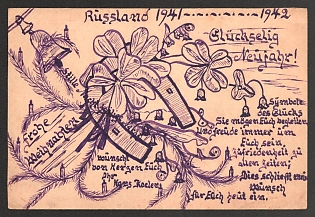 Russland 1941 - 1942
Glückselig
Neujahr!
Stille
Frohe
Weihnachten
wünscht
von Herzen Euch
Ihr
Hans
Symbole
des Glücks
Sie mögen Euch begleiten
und Freude immer um
Euch sein
Zufriedenheit zu
allen Zeiten;
Dies schließt mein
Wunsch
für Euch heut ein.